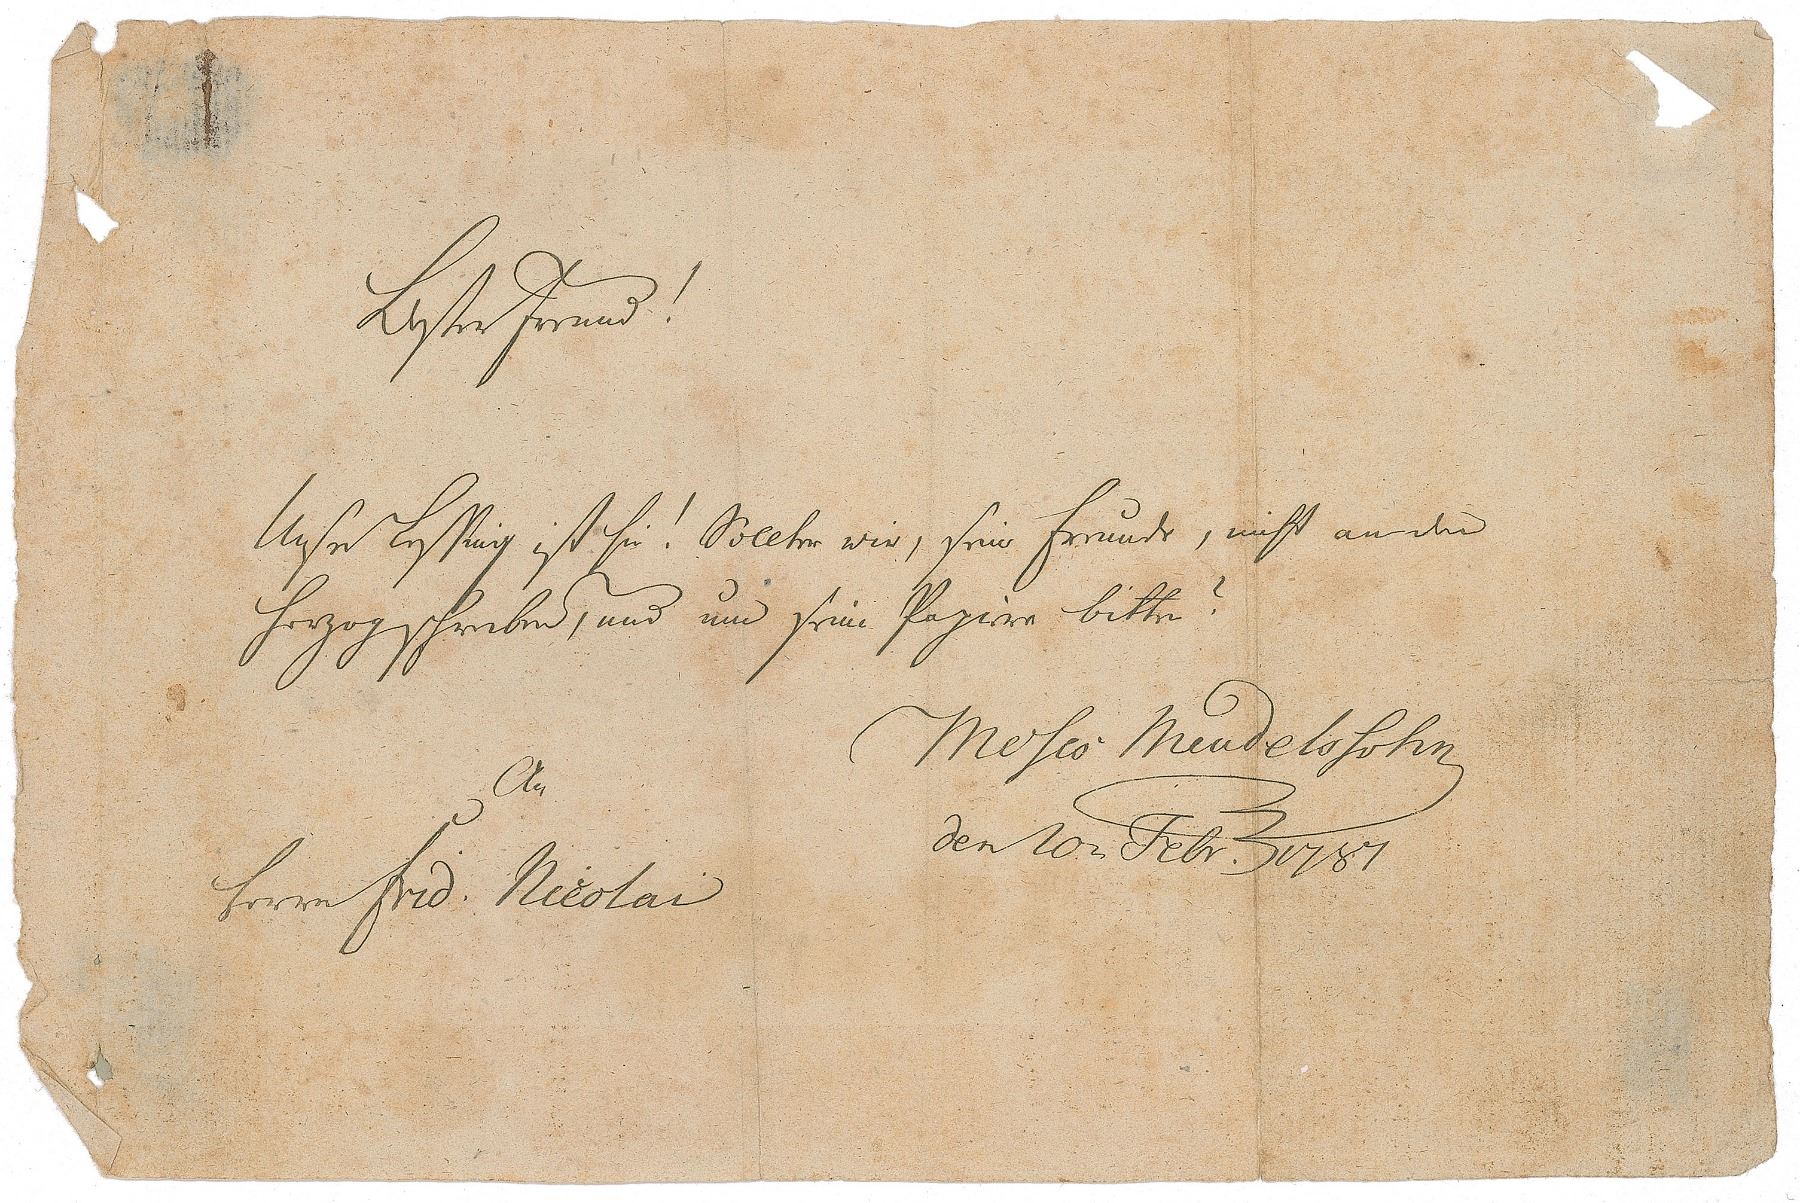 Bester Freund!
Unser Lessing ist hin! Sollten wir, seine Freunde, nicht an den
Herzog schreiben, und um seine Papiere bitten?
Moses Mendelssohn
den 20n Febr. 1781
An
Herrn Frid. Nicolai